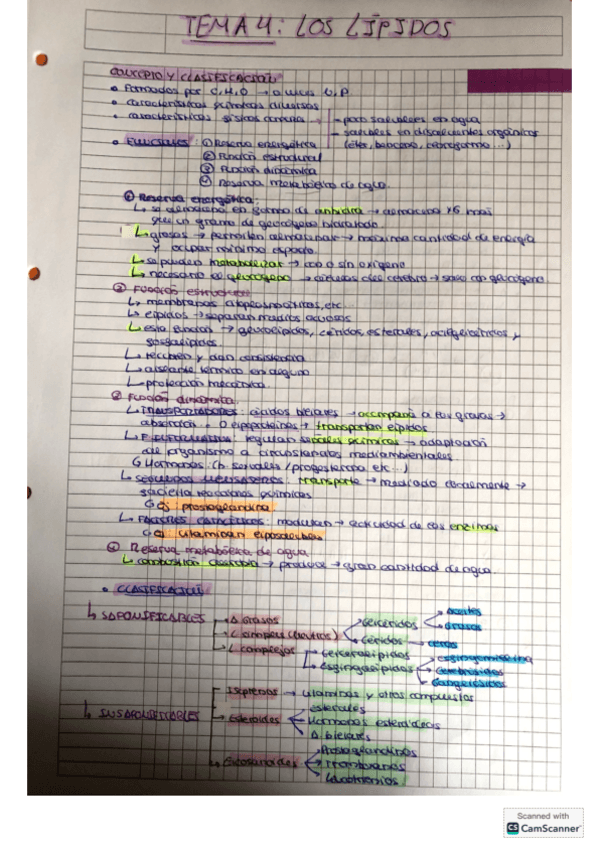 TEMA 4: LOS LÍPIDOS
CONCEPTO Y CLASIFICACIÓN
• Formados por C, H, O → a veces N, P
• características químicas diversas
• características físicas común → - poco solubles en agua
- solubles en disolventes orgánicos
(éter, benceno, cloroformo...)
• FUNCIONES: ① Reserva energética
② Función estructural
③ Función dinámica
④ Reserva metabólica de agua.
① Reserva energética:
↳ se almacena en forma de anhidra → almacena x6 más
que un gramo de glucógeno hidratado.
↳ grasas → permiten almacenar → máxima cantidad de energía
y ocupar mínimo espacio.
↳ se pueden metabolizar → con o sin oxígeno
↳ necesario el glucógeno → células del cerebro → solo con glucógeno.
② Función estructural
↳ membranas citoplasmáticas, etc..
↳ lípidos → separan medios acuosos
↳ esta función → glucolípidos, céridos, esteroles, acilglicéridos y
fosfolípidos.
↳ recubren y dan consistencia
↳ aislante térmico
↳ protección mecánica.
③ Función dinámica.
↳ TRANSPORTADORES: ácidos biliares → acompaña a las grasas →
absorción o lipoproteínas → transportan lípidos.
↳ regulan señales químicas → adaptación
del organismo a circunstancias medioambientales
↳ Hormonas (h. sexuales / progesterona etc...)
↳ SEGUNDOS MENSAJEROS: transporte → mediado →
reacciones químicas
Ej: prostaglandina
↳ FACTORES: modulan → actividad de las enzimas
Ej: vitaminas liposolubles
④ Reserva metabólica de agua
↳ combustión → produce → gran cantidad de agua.
• CLASIFICACIÓN
↳ SAPONIFICABLES
Á Grasos
L simples (neutros)
Glicéridos
Aceites
Grasas
Céridos → ceras
L complejos
Glicerolípidos
Esfingolípidos
esfingomielina
Cerebrósidos
Gangliósidos
↳ INSAPONIFICABLES
Isoprenos → vitaminas y otros compuestos
Esteroides
esteroles
Hormonas esteroideas
Á biliares
Eicosanoides
Prostaglandinas
Tromboxanos
Leucotrienos
Scanned with
CS CamScanner